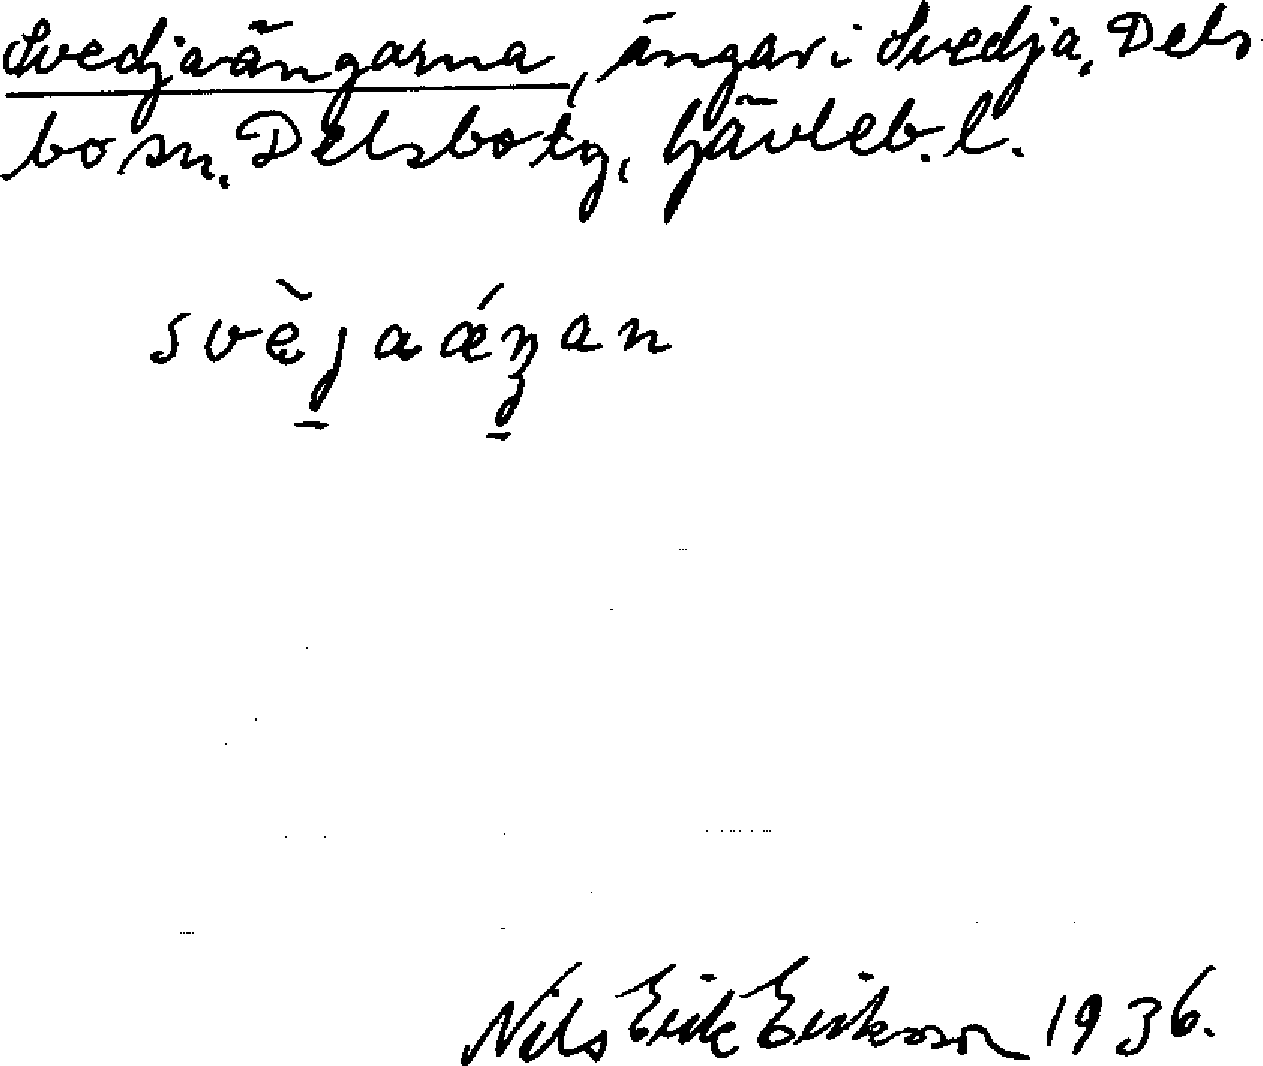 Svedjaängarna, ängar i Svedja, Dels
bo sn. Delsbo tg, Gävleb. l.
svèjaáŋan
Nils Erik Eriksson 1936.